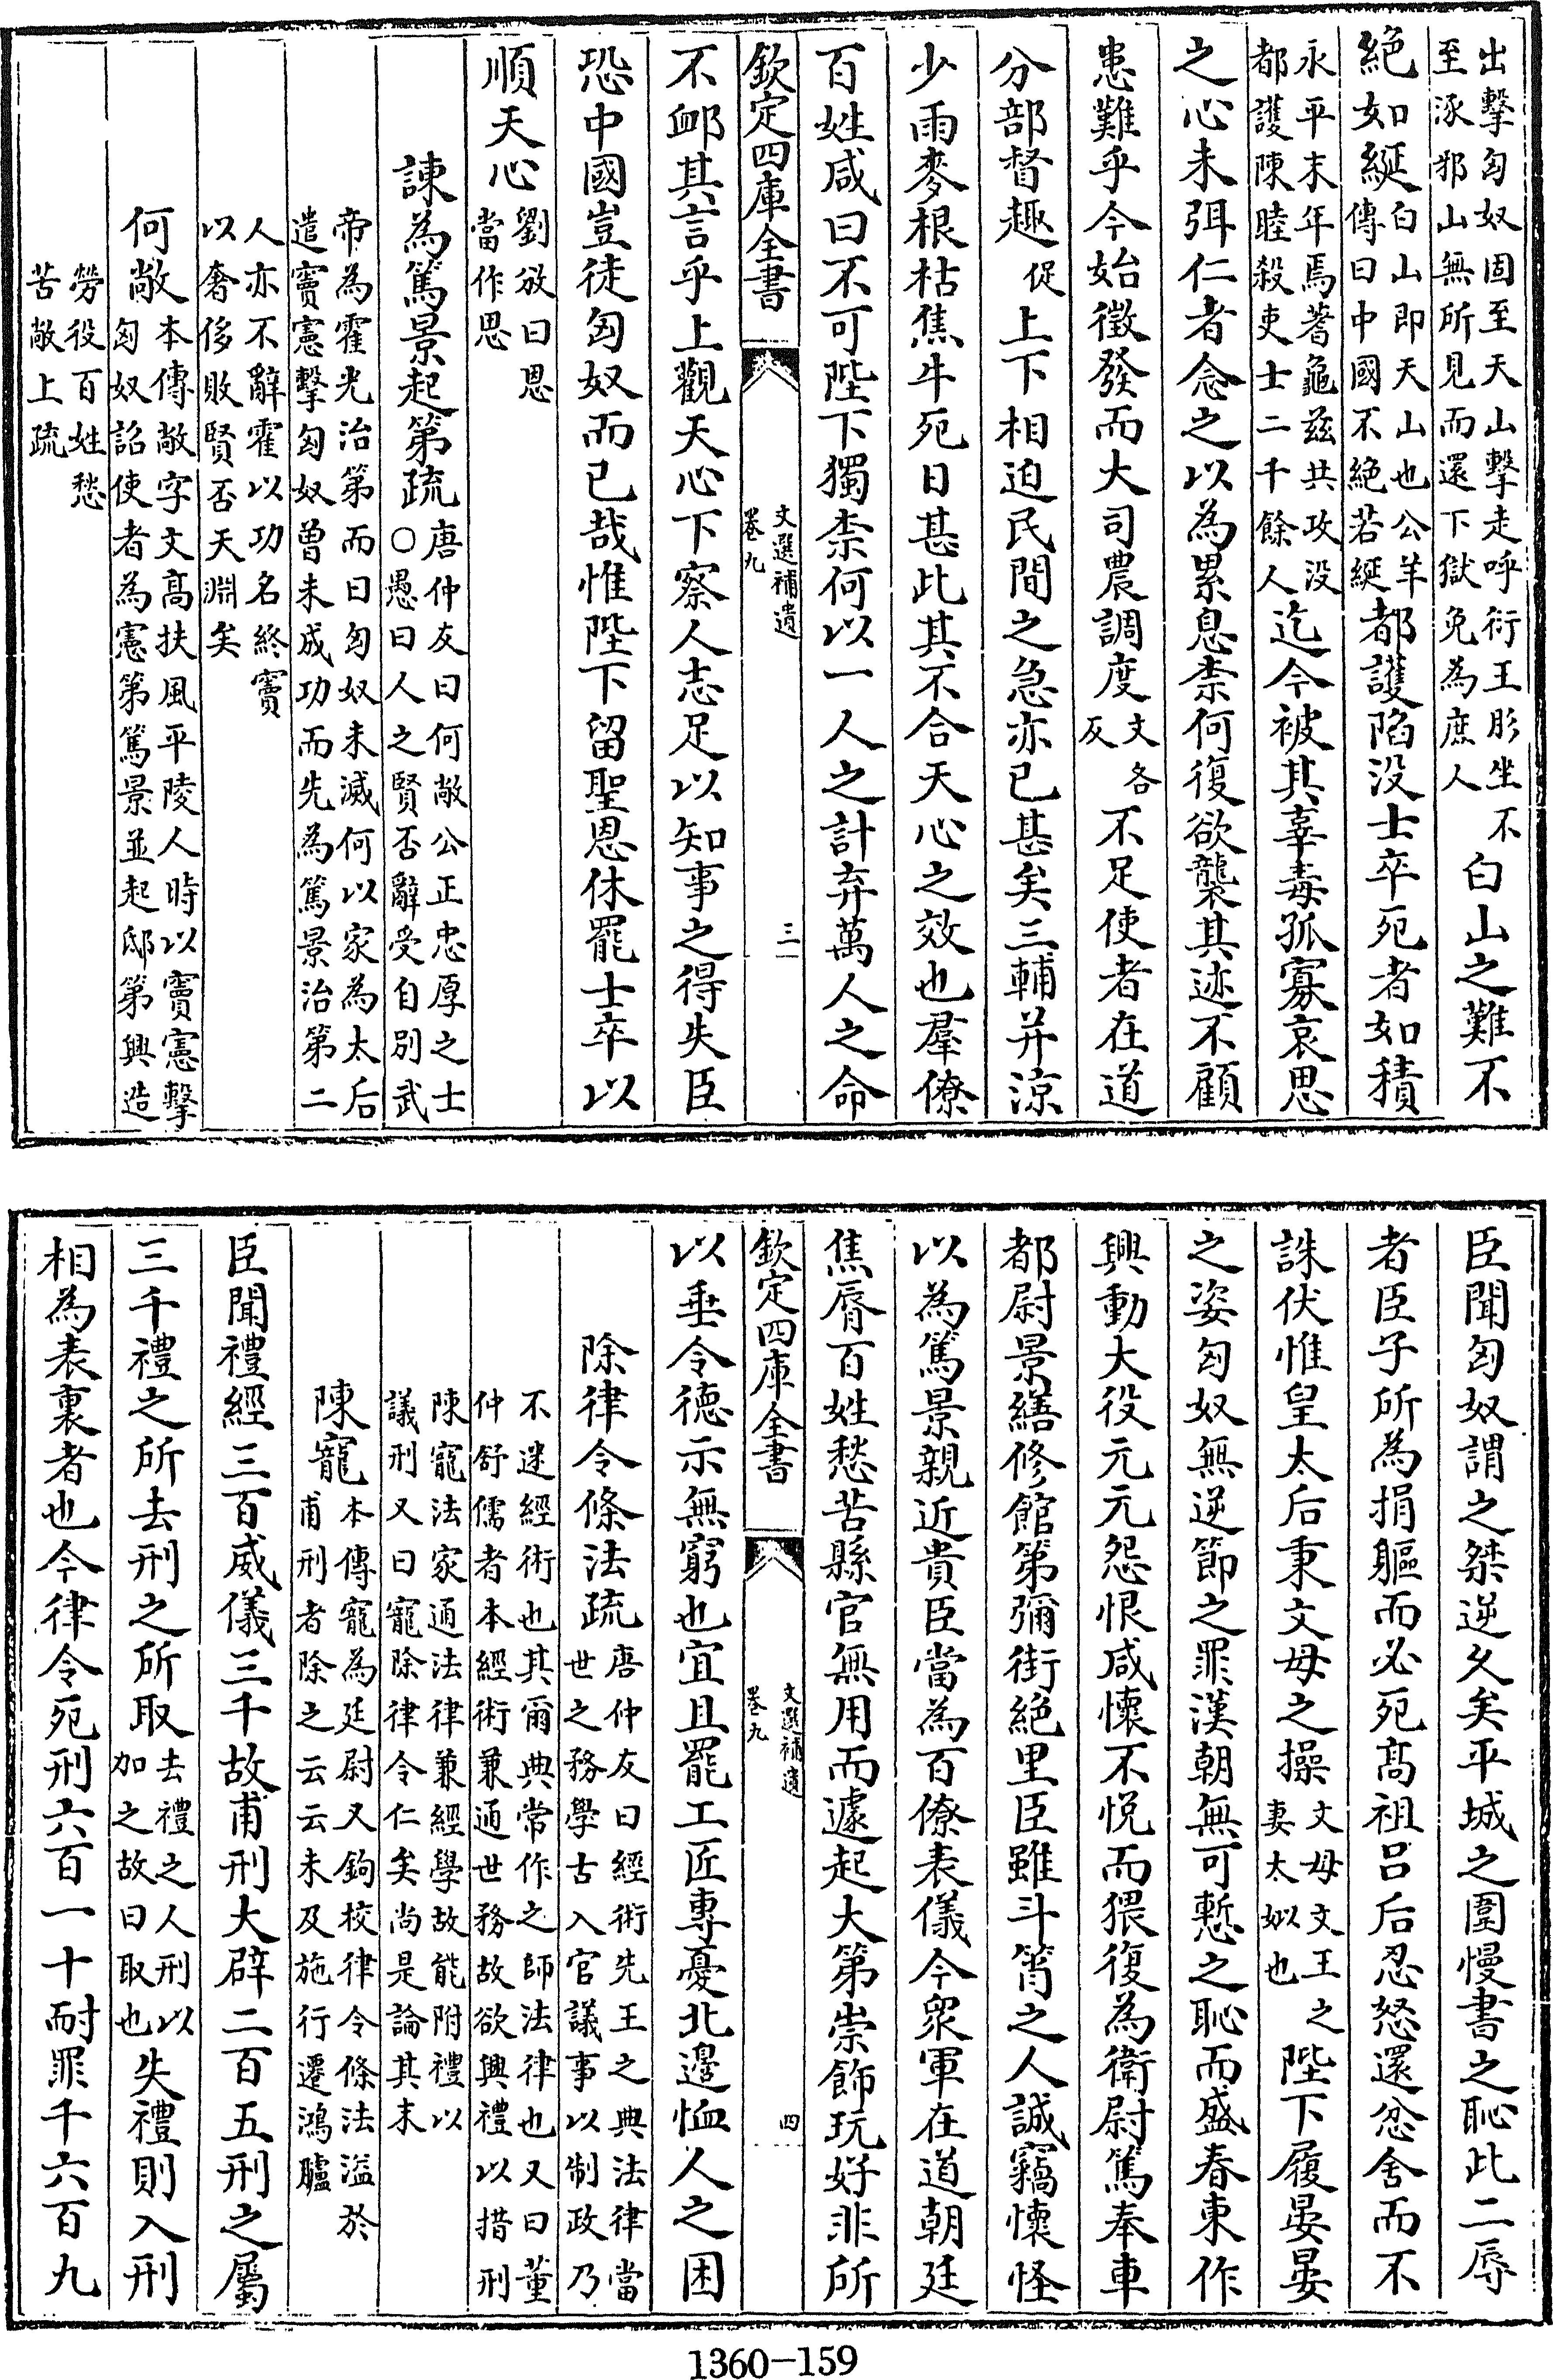 出擊匈奴固至天山擊走呼衍王肜坐不
至涿邪山無所見而還下獄免為庶人
白山之難不
絶如綖
白山即天山也公羊
傳曰中國不絶若綖
都護陷没士卒死者如積
永平末年焉耆龜兹共攻没
都護陳睦殺吏士二千餘人
迄今被其辜毒孤寡哀思
之心未弭仁者念之以為累息柰何復欲襲其迹不顧
患難乎今始徵發而大司農調度
文各
反
不足使者在道
分部督趣
促
上下相迫民間之急亦已甚矣三輔并涼
少雨麥根枯焦牛死日甚此其不合天心之效也羣僚
百姓咸曰不可陛下獨柰何以一人之計弃萬人之命
欽定四庫全書
文選補遺
卷九
三
不卹其言乎上觀天心下察人志足以知事之得失臣
恐中國豈徒匈奴而已哉惟陛下留聖恩休罷士卒以
順天心
劉攽曰恩
當作思
諫為篤景起第疏
唐仲友曰何敞公正忠厚之士
○愚曰人之賢否辭受自別武
帝為霍光治第而曰匈奴未滅何以家為太后
遣竇憲擊匈奴曾未成功而先為篤景治第二
人亦不辭霍以功名終竇
以奢侈敗賢否天淵矣
何敞
本傳敞字文高扶風平陵人時以竇憲擊
匈奴詔使者為憲第篤景並起邸第興造
勞役百姓愁
苦敞上疏
臣聞匈奴謂之桀逆乆矣平城之圍慢書之恥此二辱
者臣子所為捐軀而必死髙祖呂后忍怒還忿舍而不
誅伏惟皇太后秉文母之操
文母文王之
妻太姒也
陛下履晏晏
之姿匈奴無逆節之罪漢朝無可慙之恥而盛春東作
興動大役元元怨恨咸懷不悦而猥復為衛尉篤奉車
都尉景繕修館第彌街絶里臣雖斗筲之人誠竊懷怪
以為篤景親近貴臣當為百僚表儀今衆軍在道朝廷
焦脣百姓愁苦縣官無用而遽起大第崇飾玩好非所
欽定四庫全書
文選補遺
卷九
四
以垂令德示無窮也宜且罷工匠專憂北邊恤人之困
除律令條法疏
唐仲友曰經術先王之典法律當
世之務學古入官議事以制政乃
不迷經術也其爾典常作之師法律也又曰董
仲舒儒者本經術兼通世務故欲興禮以措刑
陳寵法家通法律兼經學故能附禮以
議刑又曰寵除律令仁矣尚是論其末
陳寵
本傳寵為廷尉又鉤校律令條法溢於
甫刑者除之云云未及施行遷鴻臚
臣聞禮經三百威儀三千故甫刑大辟二百五刑之屬
三千禮之所去刑之所取
去禮之人刑以
加之故曰取也
失禮則入刑
相為表裏者也今律令死刑六百一十耐罪千六百九
1360-159